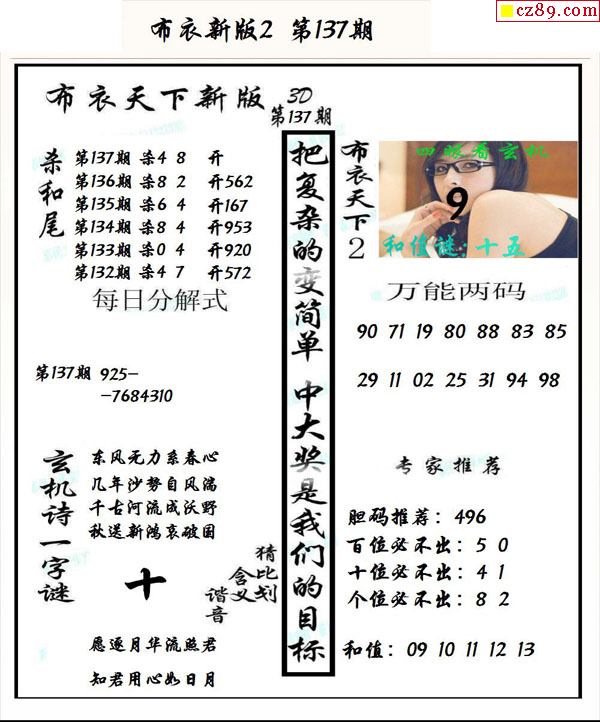 cz89.com
布衣新版2 第137期
布衣天下新版 3D
第137期
杀和尾
第137期 杀4 8 开
第136期 杀8 2 开562
第135期 杀6 4 开167
第134期 杀8 4 开953
第133期 杀0 4 开920
第132期 杀4 7 开572
每日分解式
第137期 925-
-7684310
玄机诗一字谜
东风无力系春心
几年沙势自风湍
千古河流成沃野
秋送新鸿哀破国
十
猜比划
含义
谐音
愿逐月华流照君
知君用心如日月
把复杂的变简单 中大奖是我们的目标
布衣天下2
四眼看玄机
9
和值谜:十五
万能两码
90 71 19 80 88 83 85
29 11 02 25 31 94 98
专家推荐
胆码推荐：496
百位必不出：5 0
十位必不出：4 1
个位必不出：8 2
和值：09 10 11 12 13